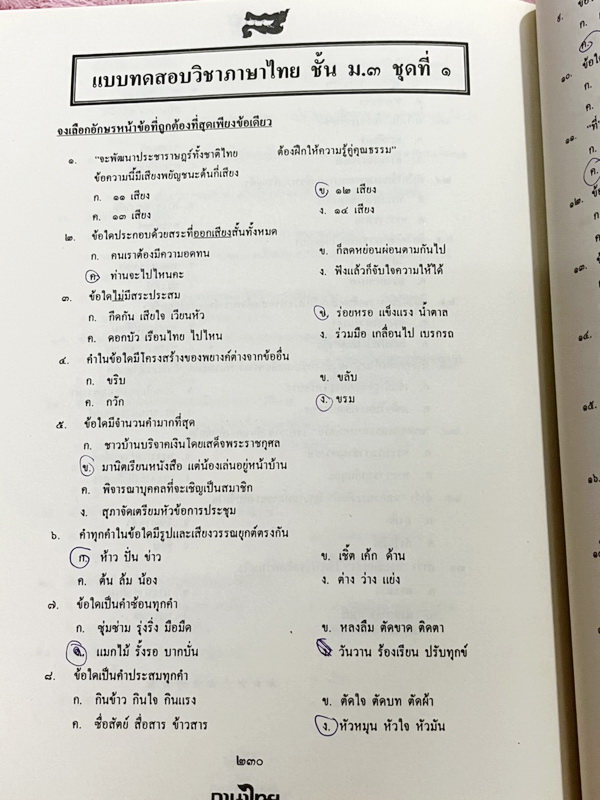 แบบทดสอบวิชาภาษาไทย ชั้น ม.๓ ชุดที่ ๑
จงเลือกอักษรหน้าข้อที่ถูกต้องที่สุดเพียงข้อเดียว
๑. "จะพัฒนาประชาราษฎร์ทั้งชาติไทย ต้องฝึกให้ความรู้คู่คุณธรรม"
ข้อความนี้มีเสียงพยัญชนะต้นกี่เสียง
ก. ๑๑ เสียง ข. ๑๒ เสียง
ค. ๑๓ เสียง ง. ๑๔ เสียง
๒. ข้อใดประกอบด้วยสระที่ออกเสียงสั้นทั้งหมด
ก. คนเราต้องมีความอดทน ข. ก็ลดหย่อนผ่อนตามกันไป
ค. ท่านจะไปไหนคะ ง. ฟังแล้วก็จับใจความให้ได้
๓. ข้อใดไม่มีสระประสม
ก. กีดกัน เสียใจ เวียนหัว ข. ร่อยหรอ แข็งแรง น้ำตาล
ค. ดอกบัว เรือนไทย ไปไหน ง. ร่วมมือ เกลื่อนไป เบรกรถ
๔. คำในข้อใดมีโครงสร้างของพยางค์ต่างจากข้ออื่น
ก. ขริบ ข. ขลับ
ค. กวัก ง. ขรม
๕. ข้อใดมีจำนวนคำมากที่สุด
ก. ชาวบ้านบริจาคเงินโดยเสด็จพระราชกุศล
ข. มานิตเรียนหนังสือ แต่น้องเล่นอยู่หน้าบ้าน
ค. พิจารณาบุคคลที่จะเชิญเป็นสมาชิก
ง. สุภาจัดเตรียมหัวข้อการประชุม
๖. คำทุกคำในข้อใดมีรูปและเสียงวรรณยุกต์ตรงกัน
ก. ห้าว ปั่น ข่าว ข. เชิ้ต เค้ก ด้าน
ค. ต้น ล้ม น้อง ง. ต่าง ว่าง แย่ง
๗. ข้อใดเป็นคำซ้อนทุกคำ
ก. ซุ่มซ่าม รุ่งริ่ง มือมืด ข. หลงลืม ตัดขาด ติดตา
แมกไม้ รั้งรอ บากบั่น วันวาน ร้องเรียน ปรับทุกข์
๘. ข้อใดเป็นคำประสมทุกคำ
ก. กินข้าว กินใจ กินแรง ข. ตัดใจ ตัดบท ตัดผ้า
ค. ซื่อสัตย์ สื่อสาร ข้าวสาร ง. หัวหมุน หัวใจ หัวมัน
๒๓๐
ภาษาไทย
๑๐.
๑๑.
๑๒.
๑๓.
๑๔.
๑๕.
๑๖.